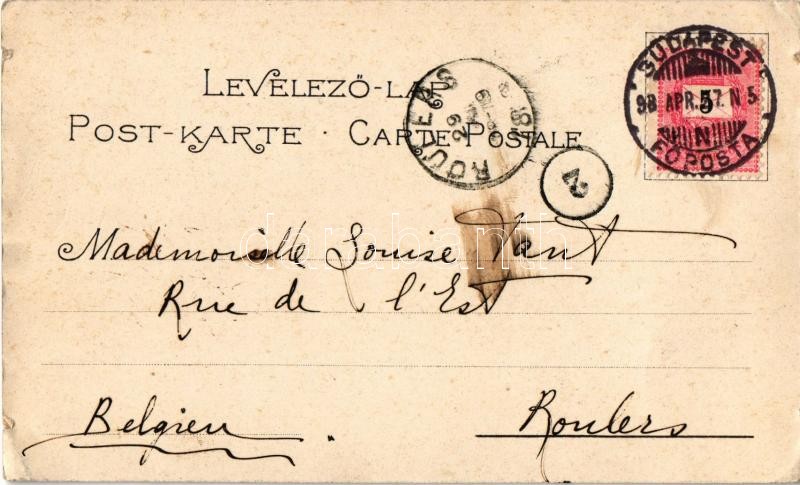 LEVELEZŐ-LAP
POST-KARTE · CARTE POSTALE
BUDAPEST
98 APR. 27. N 5
N
FŐPOSTA
5
ROULERS
29
Mademoiselle Louise Tant
Rue de l'Est
Belgien
Roulers
darabanth